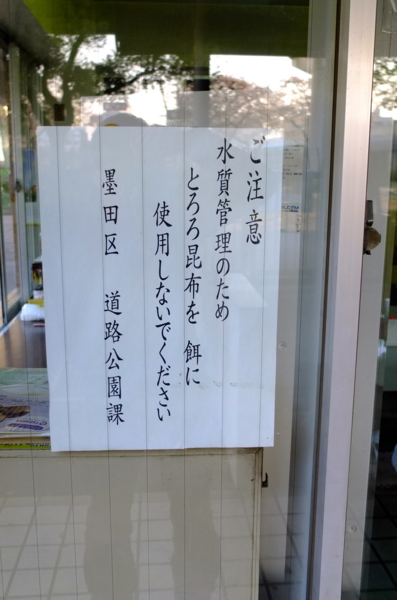 ご注意
水質管理のため
とろろ昆布を 餌に
使用しないでください
墨田区 道路公園課